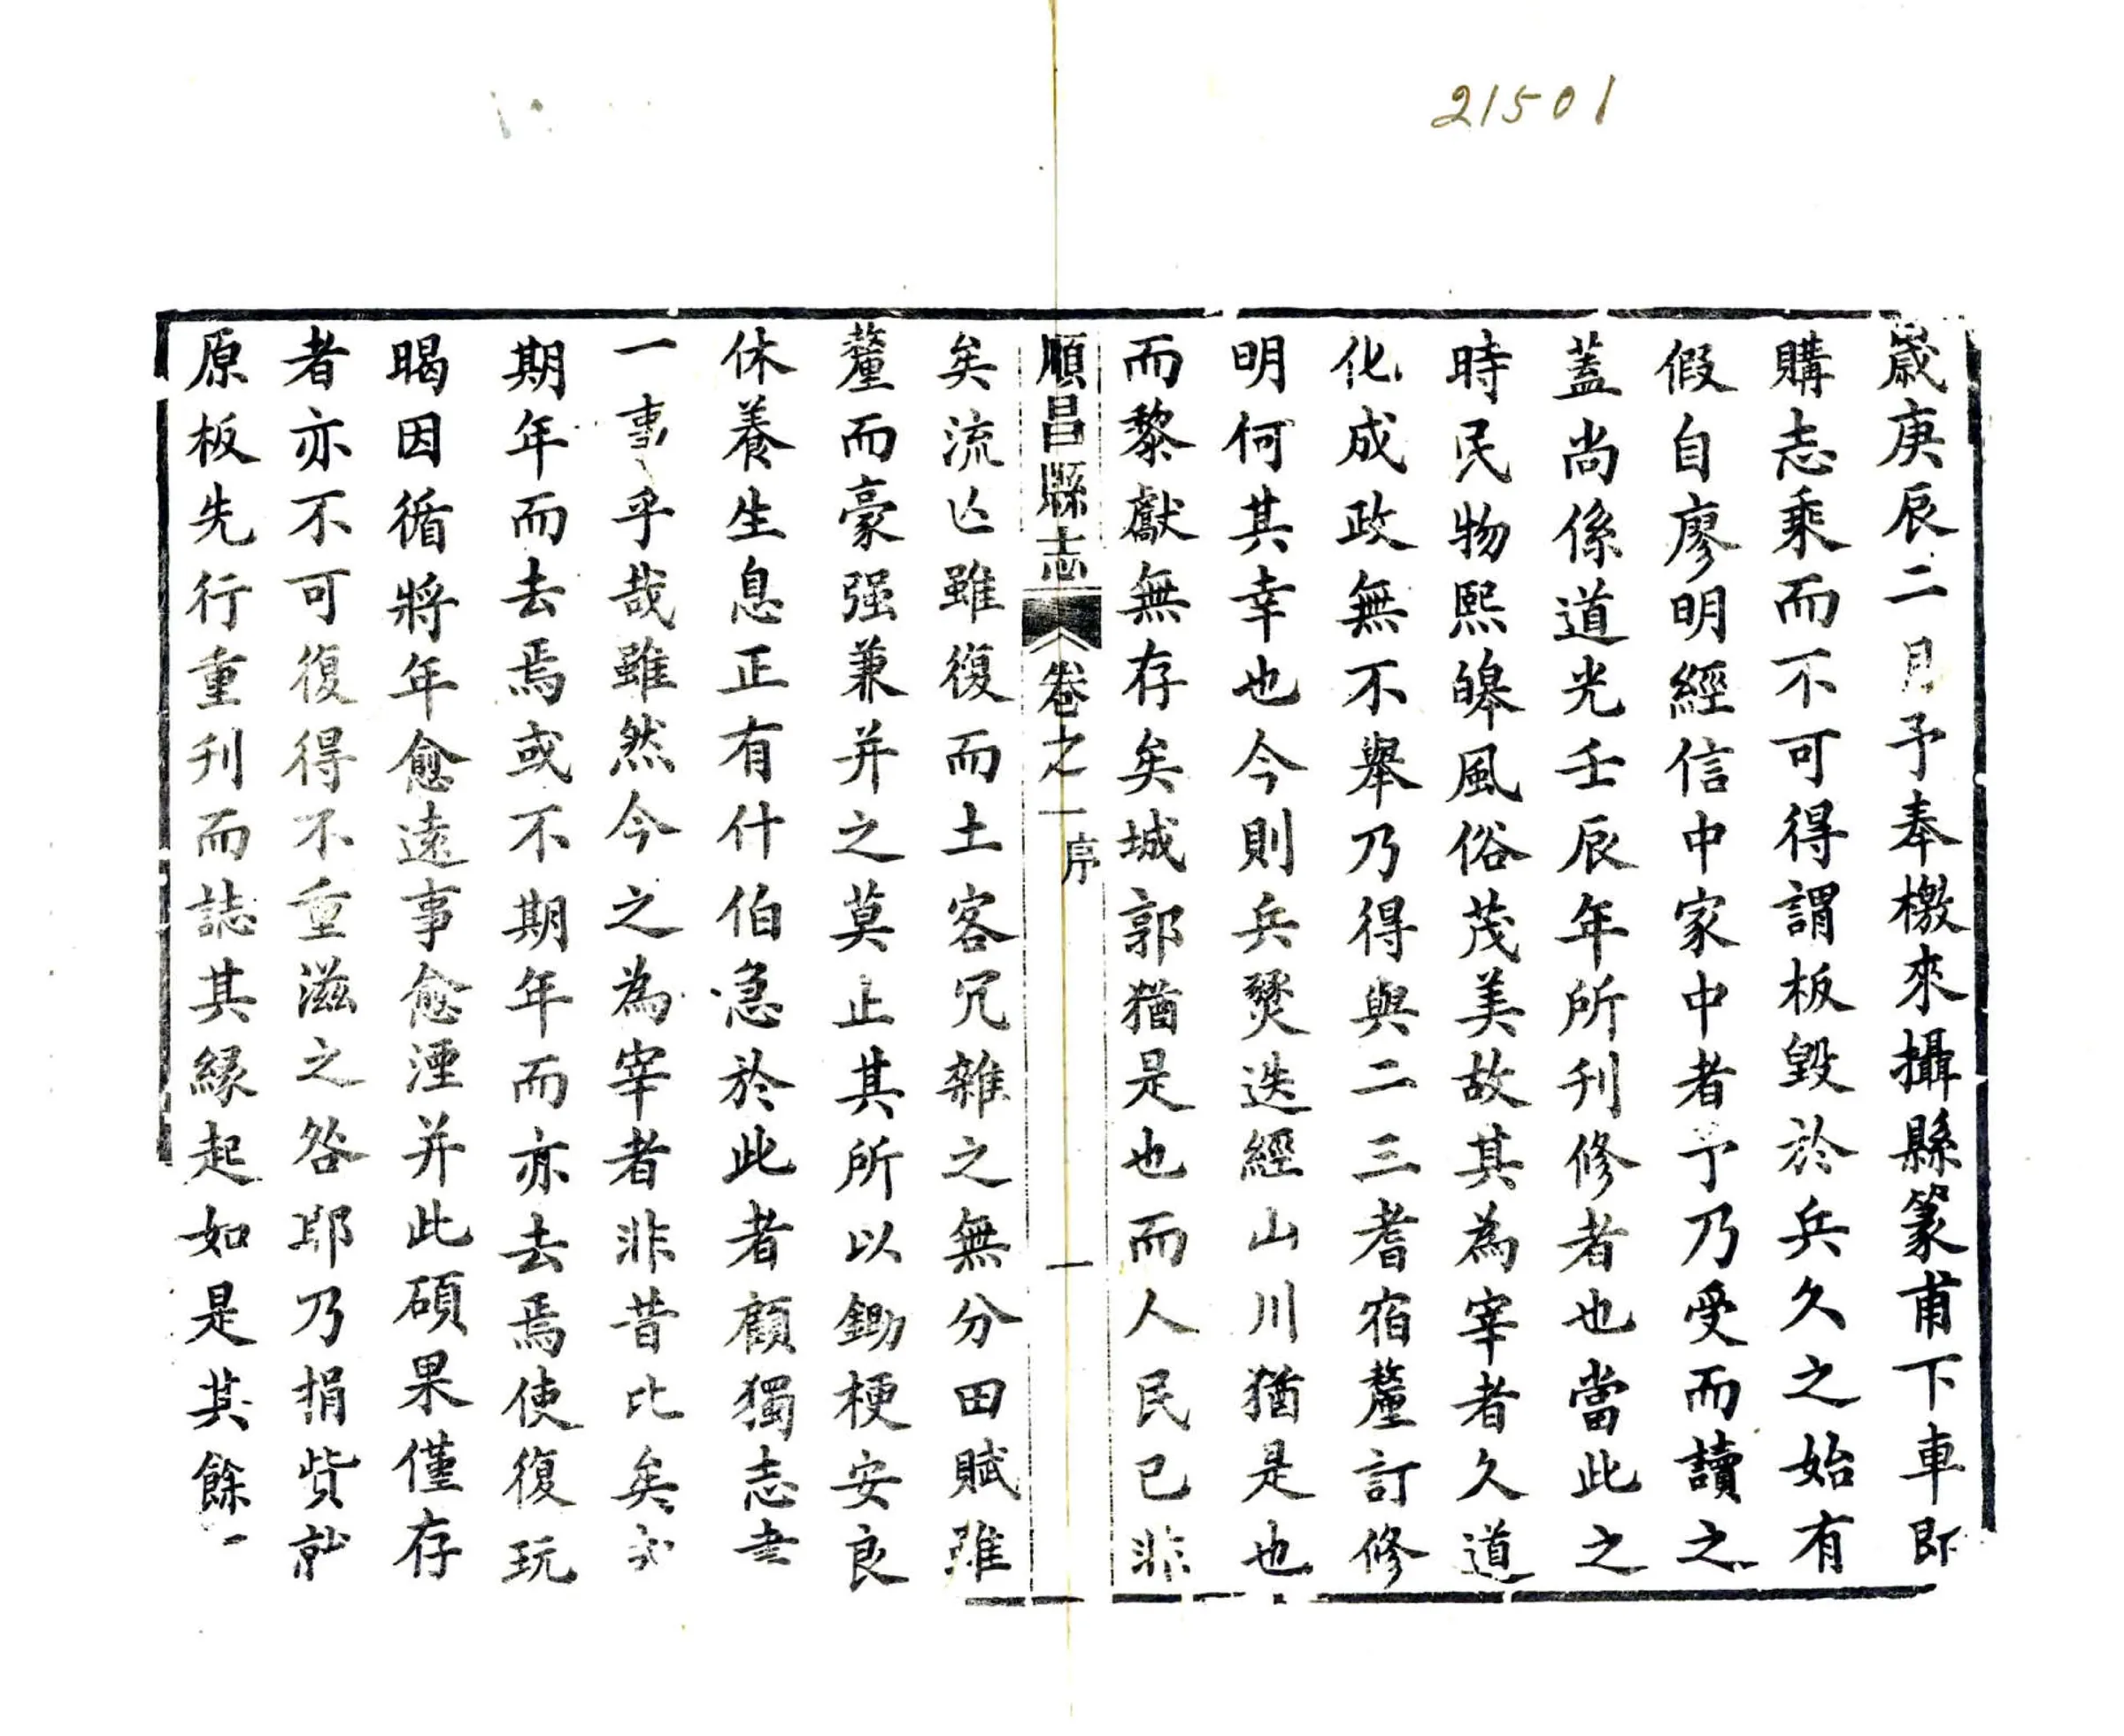 21501
歲庚辰二月予奉檄來攝縣篆甫下車即
購志乘而不可得謂板毀於兵久之始有
假自廖明經信中家中者予乃受而讀之
蓋尚係道光壬辰年所刊修者也當此之
時民物熙皞風俗茂美故其為宰者久道
化成政無不舉乃得與二三耆宿釐訂修
明何其幸也今則兵燹迭經山川猶是也
而黎獻無存矣城郭猶是也而人民已非
順昌縣志 卷之一 序 一
矣流亾雖復而土客冗雜之無分田賦雖
釐而豪强兼并之莫止其所以鋤梗安良
休養生息正有什伯急於此者顧獨志書
一事乎哉雖然今之為宰者非昔比矣
期年而去焉或不期年而亦去焉使復玩
暍因循將年愈遠事愈湮并此碩果僅存
者亦不可復得不重滋之咎耶乃捐貲就
原板先行重刊而誌其緣起如是其餘一